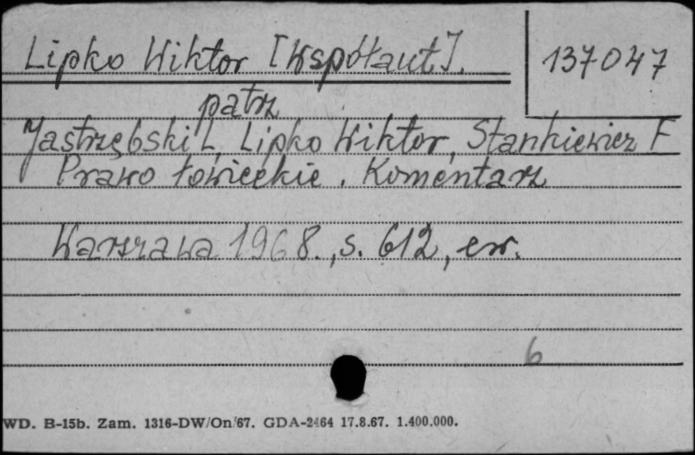 Lipko Wiktor [Współaut].
137047
patrz
Jastrzębski L, Lipko Wiktor, Stankiewicz F
Prawo łowieckie. Komentarz
Warszawa 1968., s. 612, err.
6
WD. B-15b. Zam. 1316-DW/On/67. GDA-2464 17.8.67. 1.400.000.